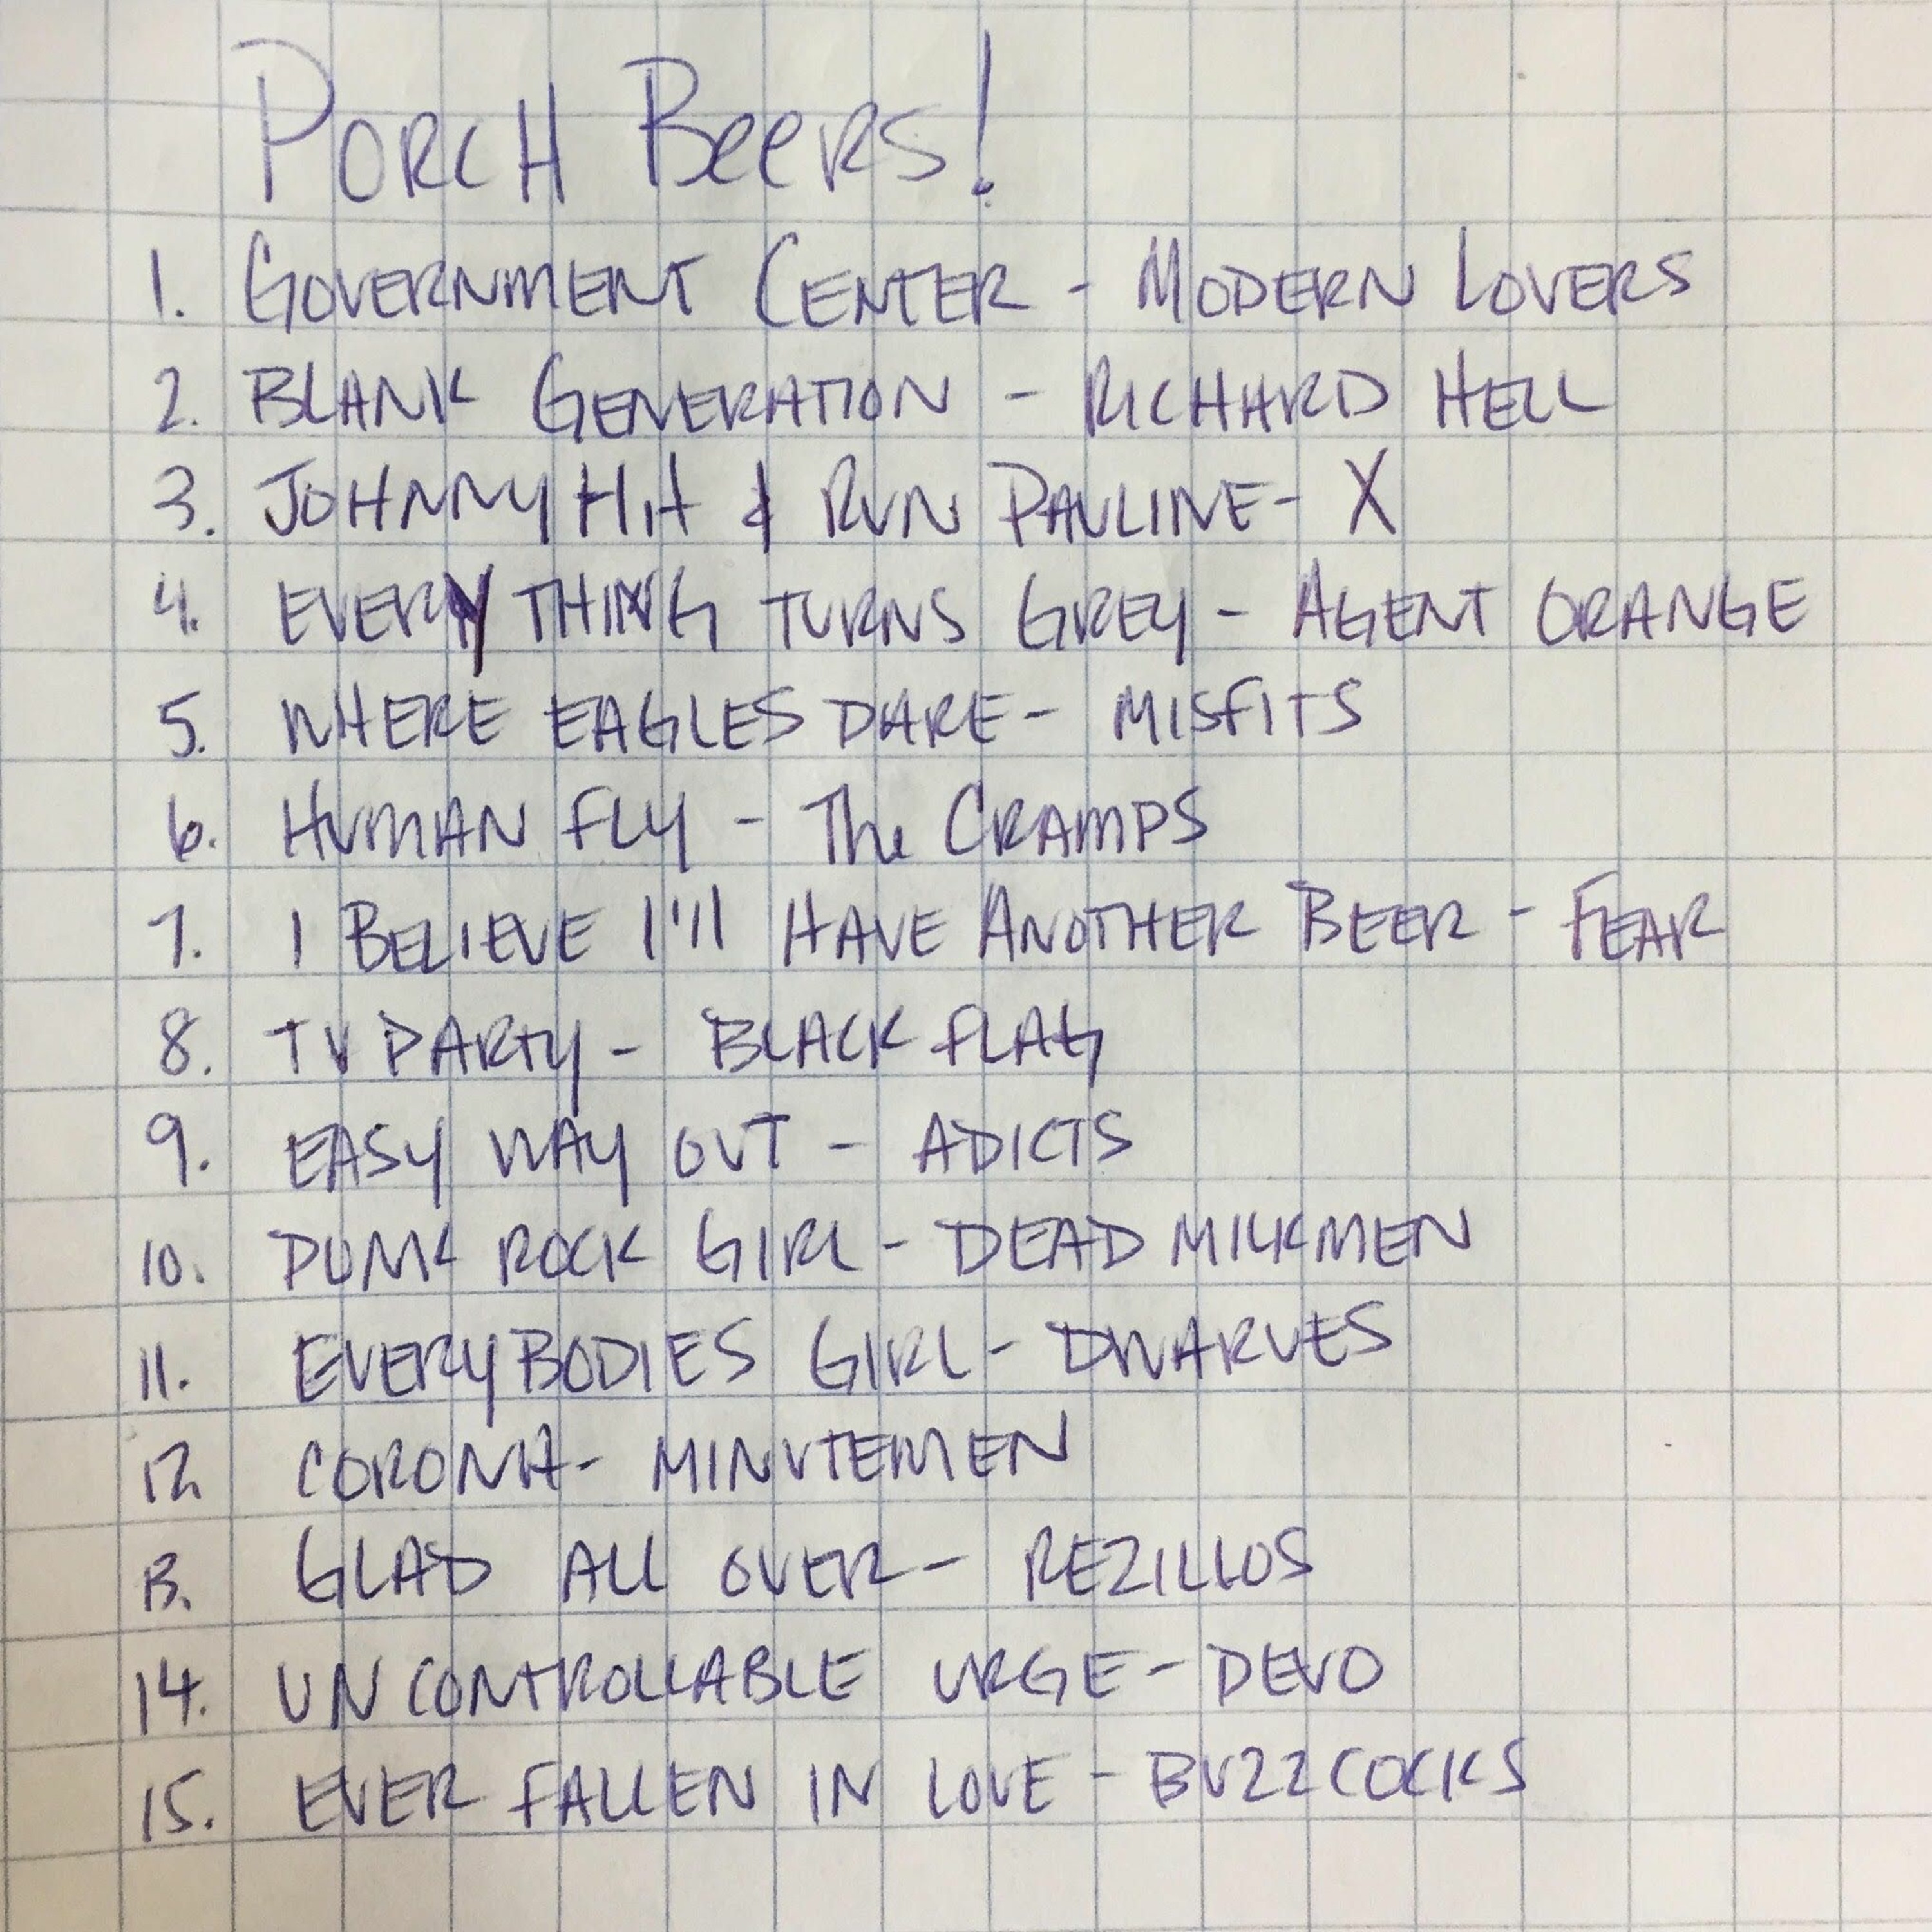 PORCH BEERS!
1. GOVERNMENT CENTER - MODERN LOVERS
2. BLANK GENERATION - RICHARD HELL
3. JOHNNY HIT & RUN PAULINE - X
4. EVERYTHING TURNS GREY - AGENT ORANGE
5. WHERE EAGLES DARE - MISFITS
6. HUMAN FLY - The CRAMPS
7. I BELIEVE I'll HAVE ANOTHER BEER - FEAR
8. TV PARTY - BLACK FLAG
9. EASY WAY OUT - ADICTS
10. PUNK ROCK GIRL - DEAD MILKMEN
11. EVERYBODIES GIRL - DWARVES
12 CORONA - MINUTEMEN
13. GLAD ALL OVER - REZILLOS
14. UNCONTROLLABLE URGE - DEVO
15. EVER FALLEN IN LOVE - BUZZCOCKS